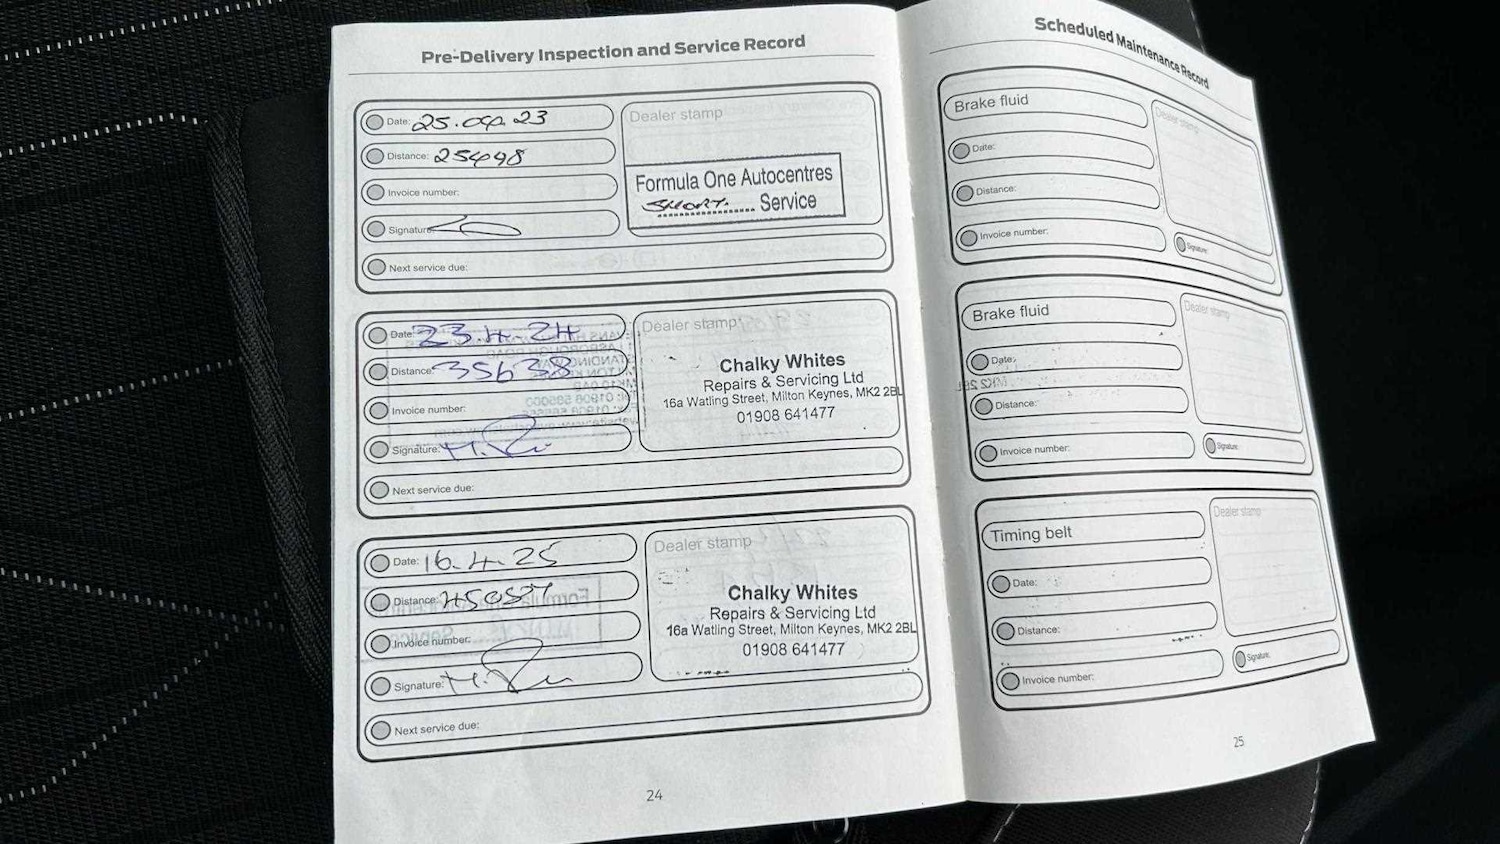 Pre-Delivery Inspection and Service Record
Date: 25.09.23
Distance: 25498
Invoice number:
Signature:
Next service due:
Dealer stamp
Formula One Autocentres
SHORT. Service
Date: 23.4.24
Distance: 35638
Invoice number:
Signature:
Next service due:
Dealer stamp
Chalky Whites
Repairs & Servicing Ltd
16a Watling Street, Milton Keynes, MK2 2BL
01908 641477
Date: 16.4.25
Distance:
Invoice number:
Signature:
Next service due:
Dealer stamp
Chalky Whites
Repairs & Servicing Ltd
16a Watling Street, Milton Keynes, MK2 2BL
01908 641477
24
Scheduled Maintenance Record
Brake fluid
Date:
Distance:
Invoice number:
Dealer stamp
Signature:
Brake fluid
Date:
Distance:
Invoice number:
Dealer stamp
Signature:
Timing belt
Date:
Distance:
Invoice number:
Dealer stamp
Signature:
25